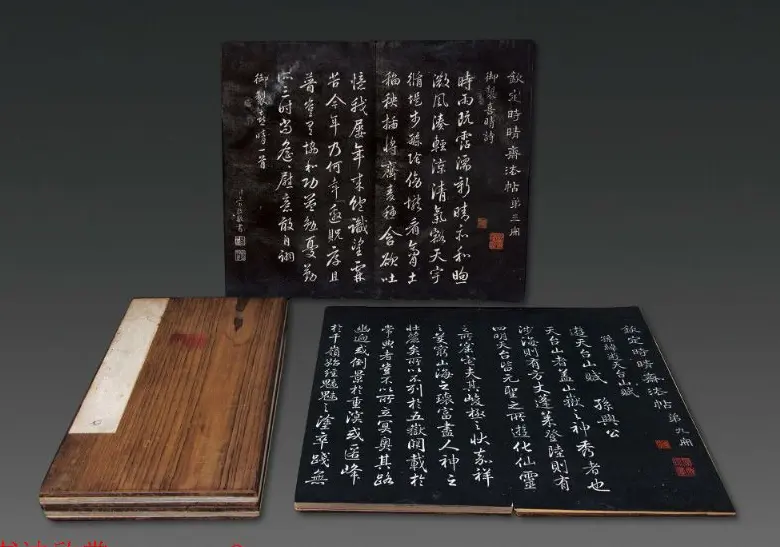 欽定時晴齋法帖第三冊
御製喜晴詩
時雨既霑濡新晴亦和煦
微風湊輕涼清氣豁天宇
循堤步 陰 看 土
稻秧插将齊麦穗含欲吐
憶我屡年来饱識望霖
苦今年乃何幸 貺 且
普 協和功益勉憂勤
三時 念 慰意敢自詡
御製喜晴一首
敬書
欽定時晴齋法帖 第九冊
孫綽遊天台山賦
遊天台山賦 孫興公
天台山者盖山嶽之神秀者也
涉海則有方丈蓬莱登陸則有
四明天台皆元聖之所遊化仙靈
之所窟宅夫其峻極之狀嘉祥
之美窮山海之瓌富盡人神之
壯麗矣所以不列於五嶽闕載於
常典者豈不以所立冥奥其路
幽迥或倒景於重溟或匿峰
於千嶺始經魑魅之塗卒踐無